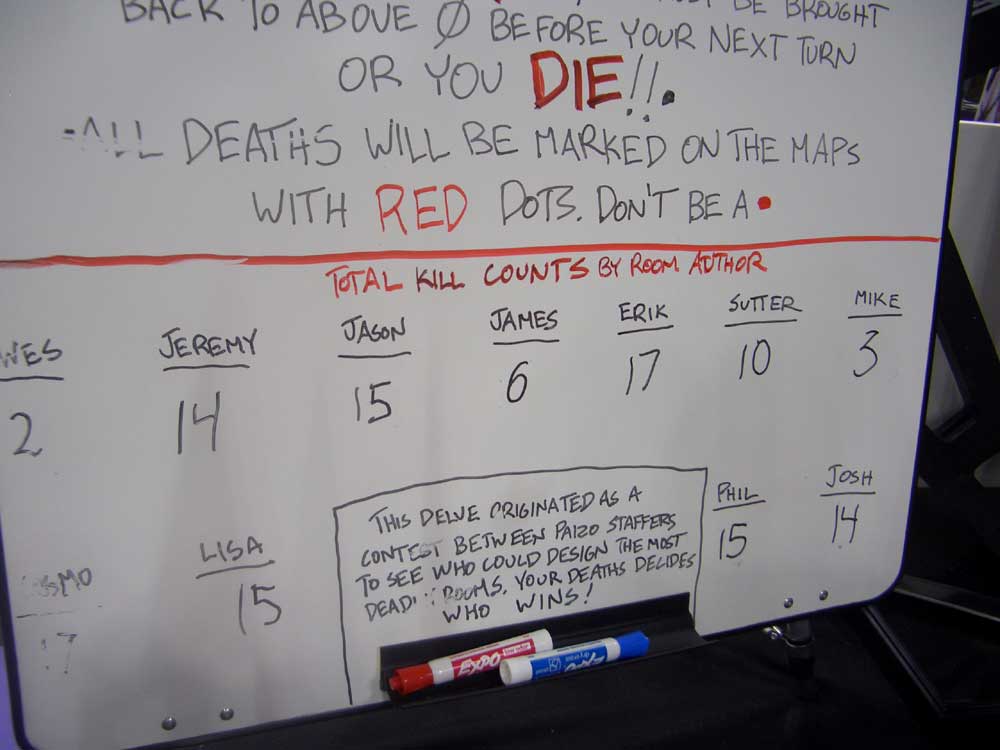 BACK TO ABOVE Ø BEFORE YOUR NEXT TURN
BE BROUGHT
OR YOU DIE!!.
-ALL DEATHS WILL BE MARKED ON THE MAPS
WITH RED DOTS. DON'T BE A •
TOTAL KILL COUNTS BY ROOM AUTHOR
WES JEREMY JASON JAMES ERIK SUTTER MIKE
2 14 15 6 17 10 3
LISA PHIL JOSH
15 15 14
THIS DELVE ORIGINATED AS A
CONTEST BETWEEN PAIZO STAFFERS
TO SEE WHO COULD DESIGN THE MOST
ROOMS. YOUR DEATHS DECIDES
WHO WINS!
EXPO
EXPO